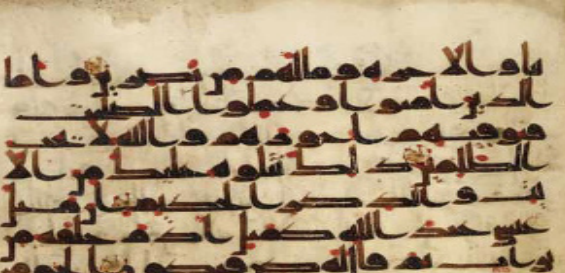 نيا والاخرة وما لهم من نصرين واما
الذين امنوا وعملوا الصلحت
فيوفيهم اجورهم والله لا يحب
الظلمين ذلك نتلوه عليك من الا
يت والذكر الحكيم ان مثل
عيسى عند الله كمثل ادم خلقه من
تراب ثم قال له كن فيكون الحق من